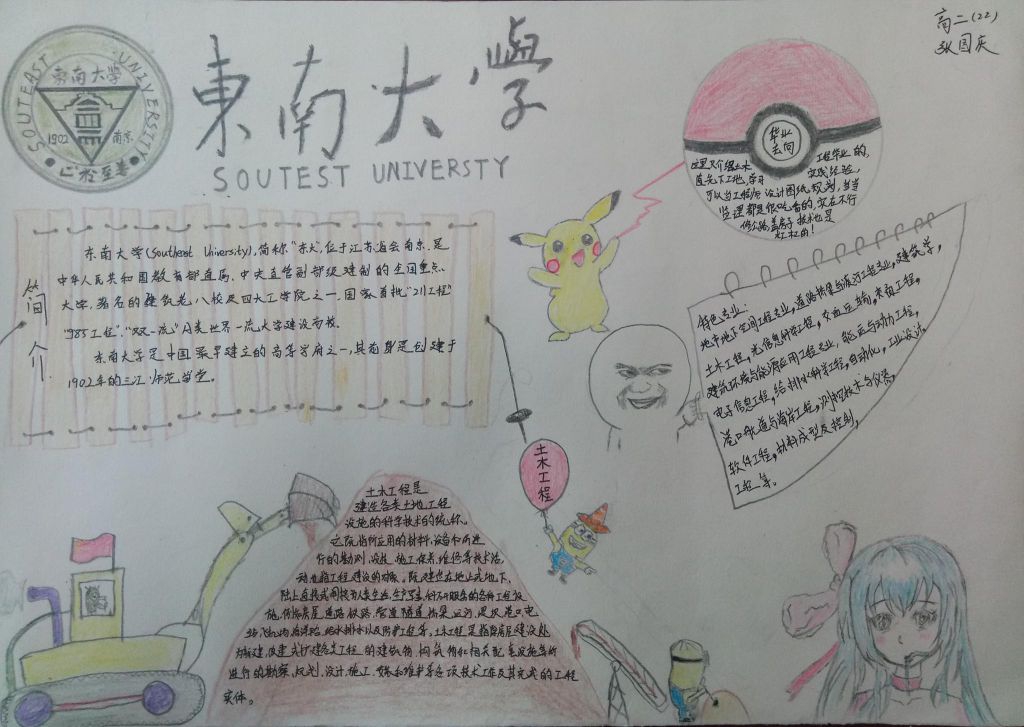 高二(22)
张国庆
SOUTEAST UNIVERSITY
東南大学
1902 南京
止於至善
東南大學
SOUTEST UNIVERSTY
毕业
去向
这里只介绍土木 工程毕业的,
首先下工地,学习 实践经验,
可以当工程师 设计图纸 规划,当当
监理都是很吃香的,实在不行
修公路,盖房子 技术也是
杠杠的!
简
介
东南大学(Southeast University),简称"东大",位于江苏省会南京,是
中华人民共和国教育部直属、中央直管副部级建制的全国重点
大学,著名的建筑老八校及四大工学院之一,国家首批"211工程"
"985工程","双一流"A类世界一流大学建设高校。
东南大学是中国最早建立的高等学府之一,其前身是创建于
1902年的三江师范学堂。
特色专业:
地下空间工程专业,道路桥梁与渡河工程专业,建筑学,
土木工程,光信息科学,交通运输,木工程,
建筑环境与能源应用工程专业,能源与动力工程,
电子信息工程,给排水科学工程,自动化,工业设计,
港口航道与海岸工程,测控技术与仪器,
软件工程,材料成型及控制,
工程等。
土
木
工
程
土木工程是
建造各类土地工程
设施的科学技术的统称。
它既指所应用的材料、设备和所进
行的勘测、设计、施工、保养、维修等技术活
动,也指工程建设的对象。既建造在地上或地下、
陆上,直接或间接为人类生活、生产、军事、科研服务的各种工程设
施,例如房屋、道路、铁路、管道、隧道、桥梁、运河、堤坝、港口、电
站、飞机场、海洋平台、给水排水以及防护工程等。土木工程是指除房屋建设外
为新建、改建或扩建各类工程的建筑物、构筑物和相关配套设施等所
进行的勘察、规划、设计、施工、安装和维护等各项技术工作及其完成的工程
实体。